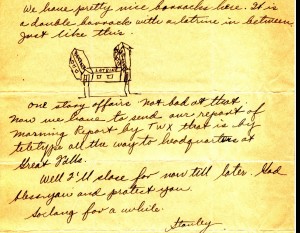 We have pretty nice barracks here. It is
a double barrack with a latrine in between
just like this.
LATRINE
One story affairs not bad at that.
Now we have to send our report of
Morning Report by TWX that is by
teletype all the way to headquarters at
Great Falls.
Well I'll close for now till later. God
bless you and protect you.
So long for a while.
Stanley